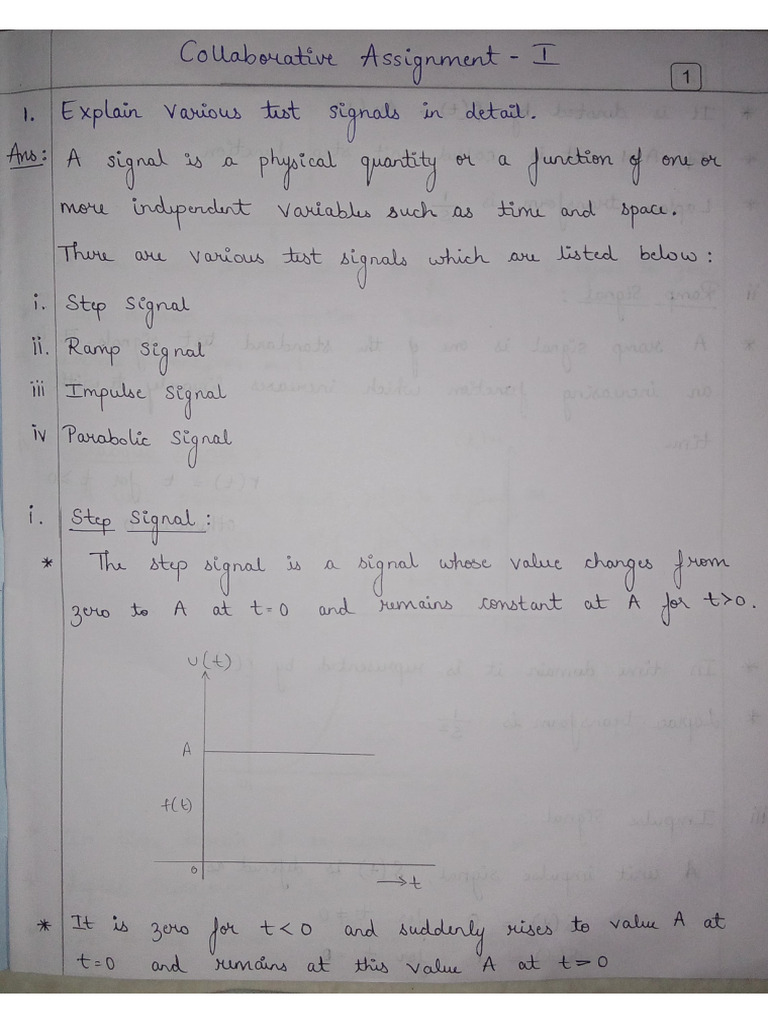 Collaborative Assignment - I
1
1. Explain various test signals in detail.
Ans: A signal is a physical quantity or a function of one or
more independent variables such as time and space.
There are various test signals which are listed below:
i. Step Signal
ii. Ramp Signal
iii Impulse Signal
iv Parabolic Signal
i. Step Signal:
* The step signal is a signal whose value changes from
zero to A at t=0 and remains constant at A for t>0.
U(t)
A
f(t)
0
→t
* It is zero for t<0 and suddenly rises to value A at
t=0 and remains at this value A at t>0